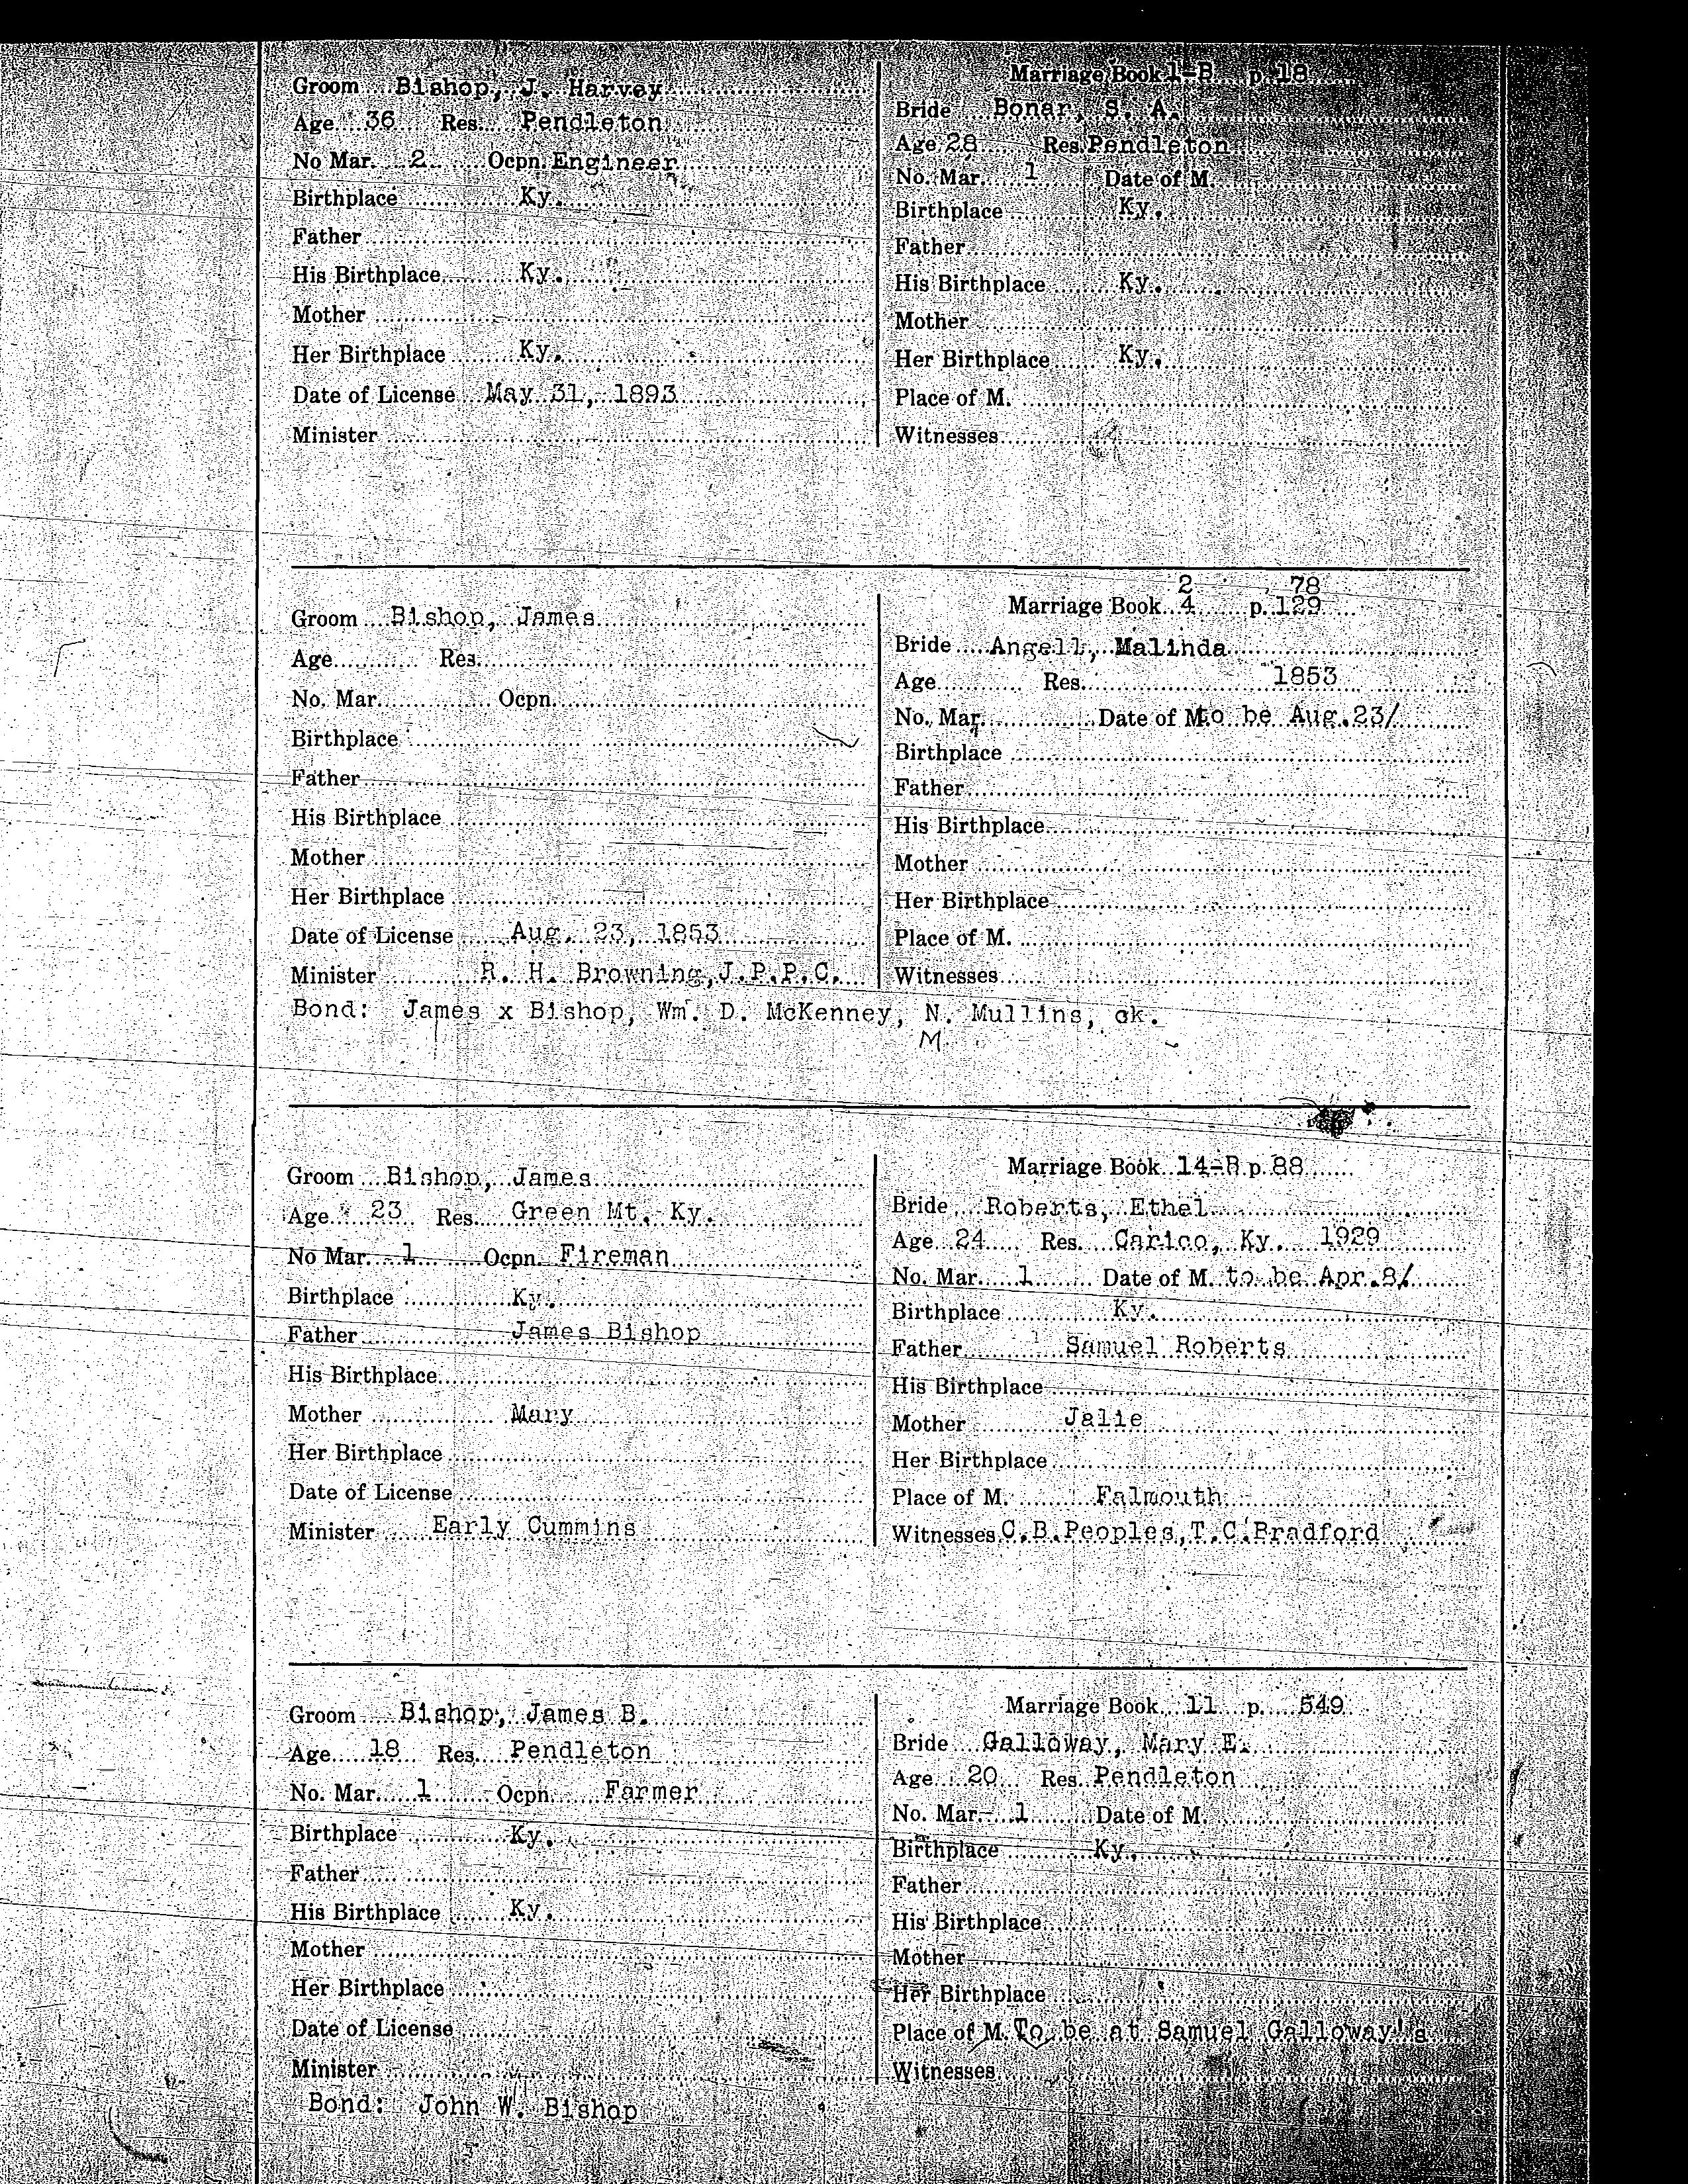 Marriage Book 1-B p. 18
Groom Bishop, J. Harvey
Age 36 Res. Pendleton
No Mar. 2 Ocpn. Engineer
Birthplace Ky.
Father
His Birthplace Ky.
Mother
Her Birthplace Ky.
Date of License May 31, 1893
Minister
Bride Bonar, S. A.
Age 28 Res. Pendleton
No. Mar. 1 Date of M.
Birthplace Ky.
Father
His Birthplace Ky.
Mother
Her Birthplace Ky.
Place of M.
Witnesses
2 78
Marriage Book 4 p. 129
Groom Bishop, James
Age Res.
No. Mar. Ocpn.
Birthplace
Father
His Birthplace
Mother
Her Birthplace
Date of License Aug. 23, 1853
Minister R. H. Browning, J.P.P.C.
Bride Angell, Malinda
Age Res. 1853
No. Mar. Date of M. to be Aug.23/
Birthplace
Father
His Birthplace
Mother
Her Birthplace
Place of M.
Witnesses
Bond: James x Bishop, Wm. D. McKenney, N. Mullins, ck.
M
Marriage Book 14-B p. 88
Groom Bishop, James
Age 23 Res. Green Mt. Ky.
No Mar. 1 Ocpn. Fireman
Birthplace Ky.
Father James Bishop
His Birthplace
Mother Mary
Her Birthplace
Date of License
Minister Early Cummins
Bride Roberts, Ethel
Age 24 Res. Carico, Ky. 1929
No. Mar. 1 Date of M. to be Apr.8/
Birthplace Ky.
Father Samuel Roberts
His Birthplace
Mother Jalie
Her Birthplace
Place of M. Falmouth
Witnesses C.B.Peoples,T.C.Bradford
Marriage Book 11 p. 549
Groom Bishop, James B.
Age 18 Res. Pendleton
No. Mar. 1 Ocpn. Farmer
Birthplace Ky.
Father
His Birthplace Ky.
Mother
Her Birthplace
Date of License
Minister
Bride Galloway, Mary E.
Age 20 Res. Pendleton
No. Mar. 1 Date of M.
Birthplace Ky.
Father
His Birthplace
Mother
Her Birthplace
Place of M. To be at Samuel Galloway's
Witnesses
Bond: John W. Bishop